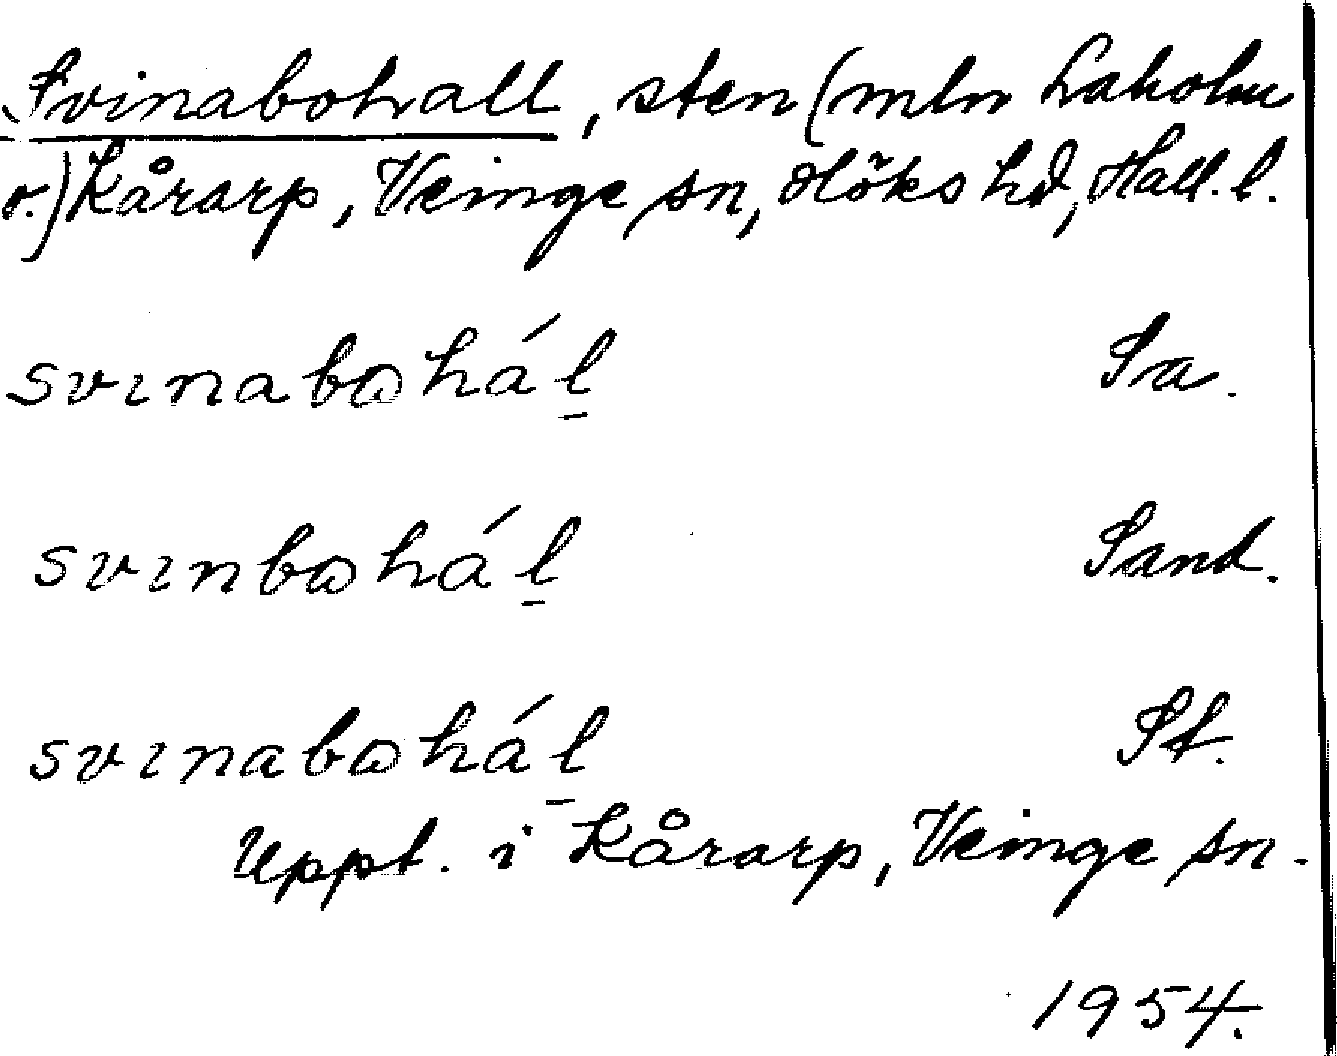 Svinabohall, sten (mln Laholm
o.) Kårarp, Veinge sn, Höks hd, Hall. l.
svınabωhál̲ Sa.
svınbωhál̲ Sand.
svınabωhál̲ St.
Uppt. i Kårarp, Veinge sn.
1954.